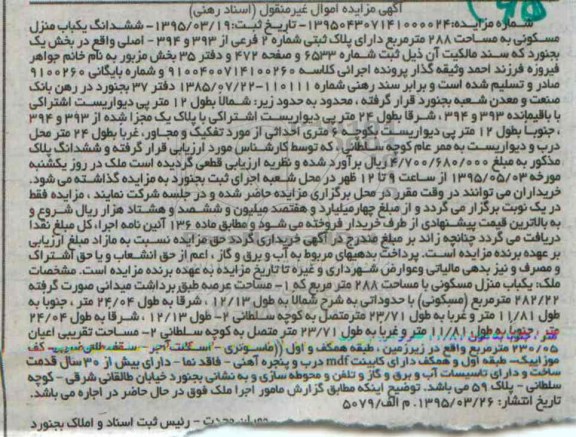 آگهی مزایده اموال غیرمنقول (اسناد رهنی)
شماره مزایده: ۱۳۹۵۰۴۳۰۷۱۴۱۰۰۰۰۲۴- تاریخ ثبت: ۱۳۹۵/۰۳/۱۹- ششدانگ یکباب منزل
مسکونی به مساحت ۲۸۸ مترمربع دارای پلاک ثبتی شماره ۲ فرعی از ۳۹۳ و ۳۹۴ - اصلی واقع در بخش یک
بجنورد که سند مالکیت آن ذیل ثبت شماره ۶۵۳۳ و صفحه ۴۷۲ و دفتر ۳۵ بخش مزبور به نام خانم جواهر
فیروزه فرزند احمد وثیقه گذار پرونده اجرائی کلاسه ۹۱۰۰۴۰۰۷۱۴۱۰۰۲۶۰ و شماره بایگانی ۹۱۰۰۲۶۰
صادر و تسلیم شده است و برابر سند رهنی شماره ۱۱۰۱۱۱-۱۳۸۵/۰۷/۲۲ دفتر ۳۷ بجنورد در رهن بانک
صنعت و معدن شعبه بجنورد قرار گرفته ، محدود به حدود زیر: شمالاً بطول ۱۲ متر پی دیواریست اشتراکی
با باقیمانده ۳۹۳ و ۳۹۴ ، شرقا بطول ۲۴ متر پی دیواریست اشتراکی با پلاک یک مجزا شده از ۳۹۳ و ۳۹۴
، جنوبا بطول ۱۲ متر پی دیواریست بکوچه ۶ متری احداثی از مورد تفکیک و مجاور، غربا بطول ۲۴ متر محل
درب و دیواریست به ممر عام کوچه سلطانی ، که توسط کارشناس مورد ارزیابی قرار گرفته و ششدانگ پلاک
مذکور به مبلغ ۴/۷۰۰/۶۸۰/۰۰۰ ریال برآورد شده و نظریه ارزیابی قطعی گردیده است ملک در روز یکشنبه
مورخه ۱۳۹۵/۰۵/۰۳ از ساعت ۹ تا ۱۲ ظهر در محل شعبه اجرای ثبت بجنورد به مزایده گذاشته می شود.
خریداران می توانند در وقت مقرر در محل برگزاری مزایده حاضر شده و در جلسه شرکت نمایند ، مزایده فقط
در یک نوبت برگزار می گردد و از مبلغ چهارمیلیارد و هفتصد میلیون و ششصد و هشتاد هزار ریال شروع و
به بالاترین قیمت پیشنهادی از طرف خریدار فروخته می شود و مطابق ماده ۱۳۶ آئین نامه اجرا، کل مبلغ نقدا
دریافت می گردد چنانچه زائد بر مبلغ مندرج در آگهی خریداری گردد حق مزایده نسبت به مازاد مبلغ ارزیابی
بر عهده برنده مزایده است. پرداخت بدهیهای مربوط به آب و برق و گاز ، اعم از حق انشعاب و یا حق اشتراک
و مصرف و نیز بدهی مالیاتی وعوارض شهرداری و غیره تا تاریخ مزایده به عهده برنده مزایده است. مشخصات
ملک: یکباب منزل مسکونی با مساحت ۲۸۸ متر مربع که ۱- مساحت عرصه طبق برداشت میدانی صورت گرفته
۲۸۲/۲۲ مترمربع (مسکونی) با حدوداتی به شرح شمالا به طول ۱۲/۱۳ ، شرقا به طول ۲۴/۰۴ متر ، جنوبا به
طول ۱۱/۸۱ متر و غربا به طول ۲۳/۷۱ مترمتصل به کوچه سلطانی ۲- طول ۱۲/۱۳ ، شرقا به طول ۲۴/۰۴
متر ، جنوبا به طول ۱۱/۸۱ متر و غربا به طول ۲۳/۷۱ متر متصل به کوچه سلطانی ۲- مساحت تقریبی اعیان
۲۳۰/۰۵ مترمربع واقع در زیرزمین ، طبقه همکف و اول ((ماسونری - اسکلت آجر - سقف طاق ضربی- کف
موزائیک- طبقه اول و همکف دارای کابینت mdf درب و پنجره آهنی - فاقد نما - دارای بیش از ۳۰ سال قدمت
ساخت و دارای تاسیسات آب و برق و گاز و تلفن و محوطه سازی و به نشانی بجنورد خیابان طالقانی شرقی - کوچه
سلطانی - پلاک ۵۹ می باشد. توضیح اینکه مطابق گزارش مامور اجرا ملک فوق در حال حاضر در اجاره می باشد.
تاریخ انتشار: ۱۳۹۵/۰۳/۲۶. م الف/۵۰۷۹
رئیس ثبت اسناد و املاک بجنورد